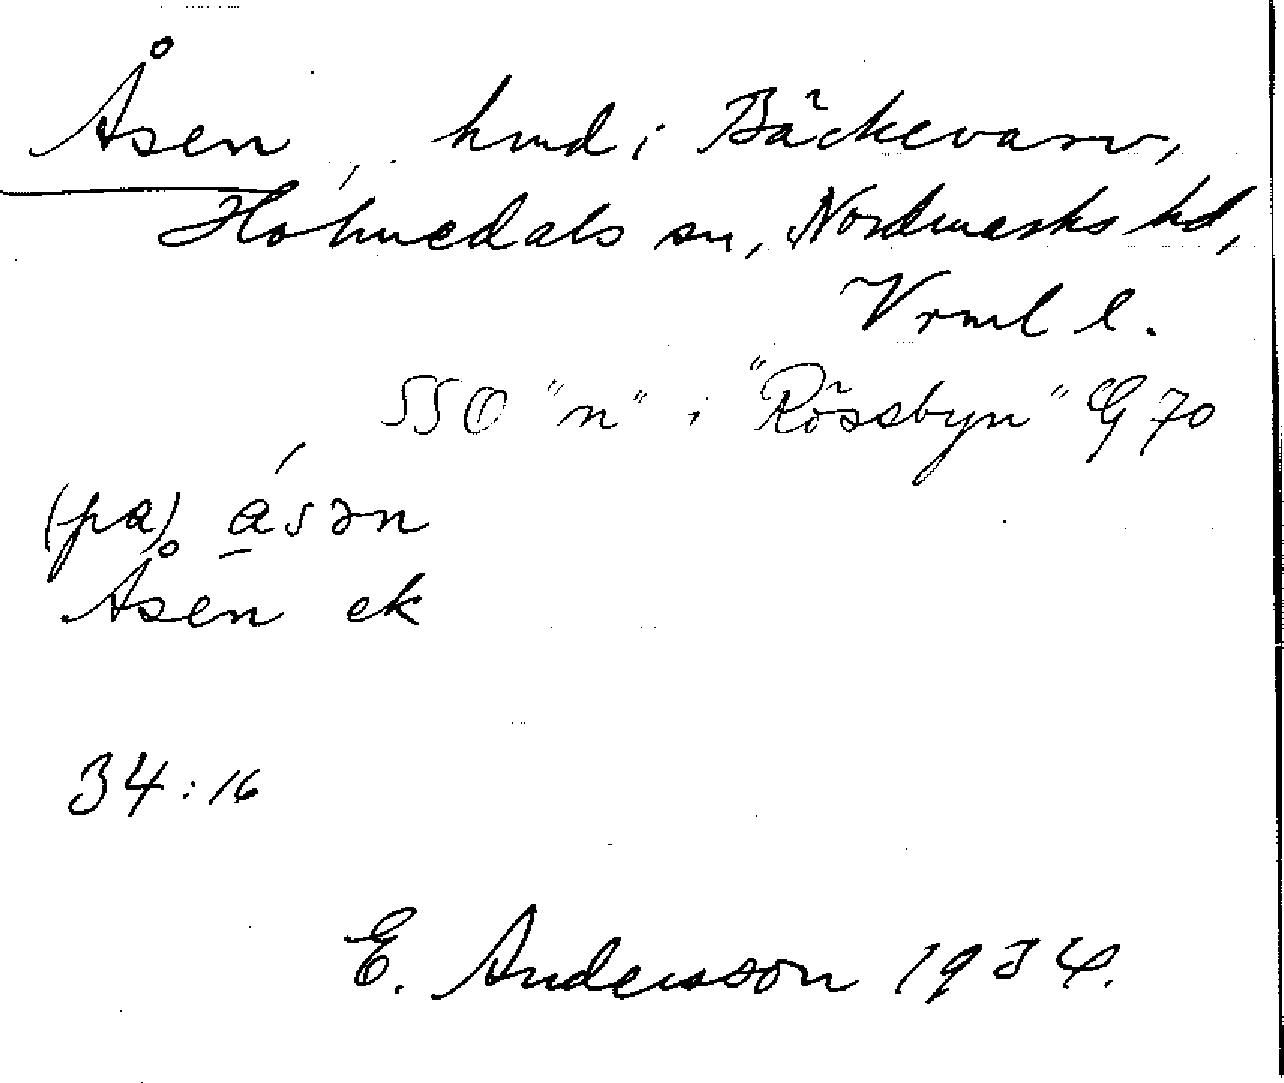 Åsen, hmd i Bäckevarv,
Holmedals sn, Nordmarks hd,
Vrml l.
SSO "n" i "Rössbyn" G 70
(pa) a̲sən
Åsen ek
34:16
E. Andersson 1934.